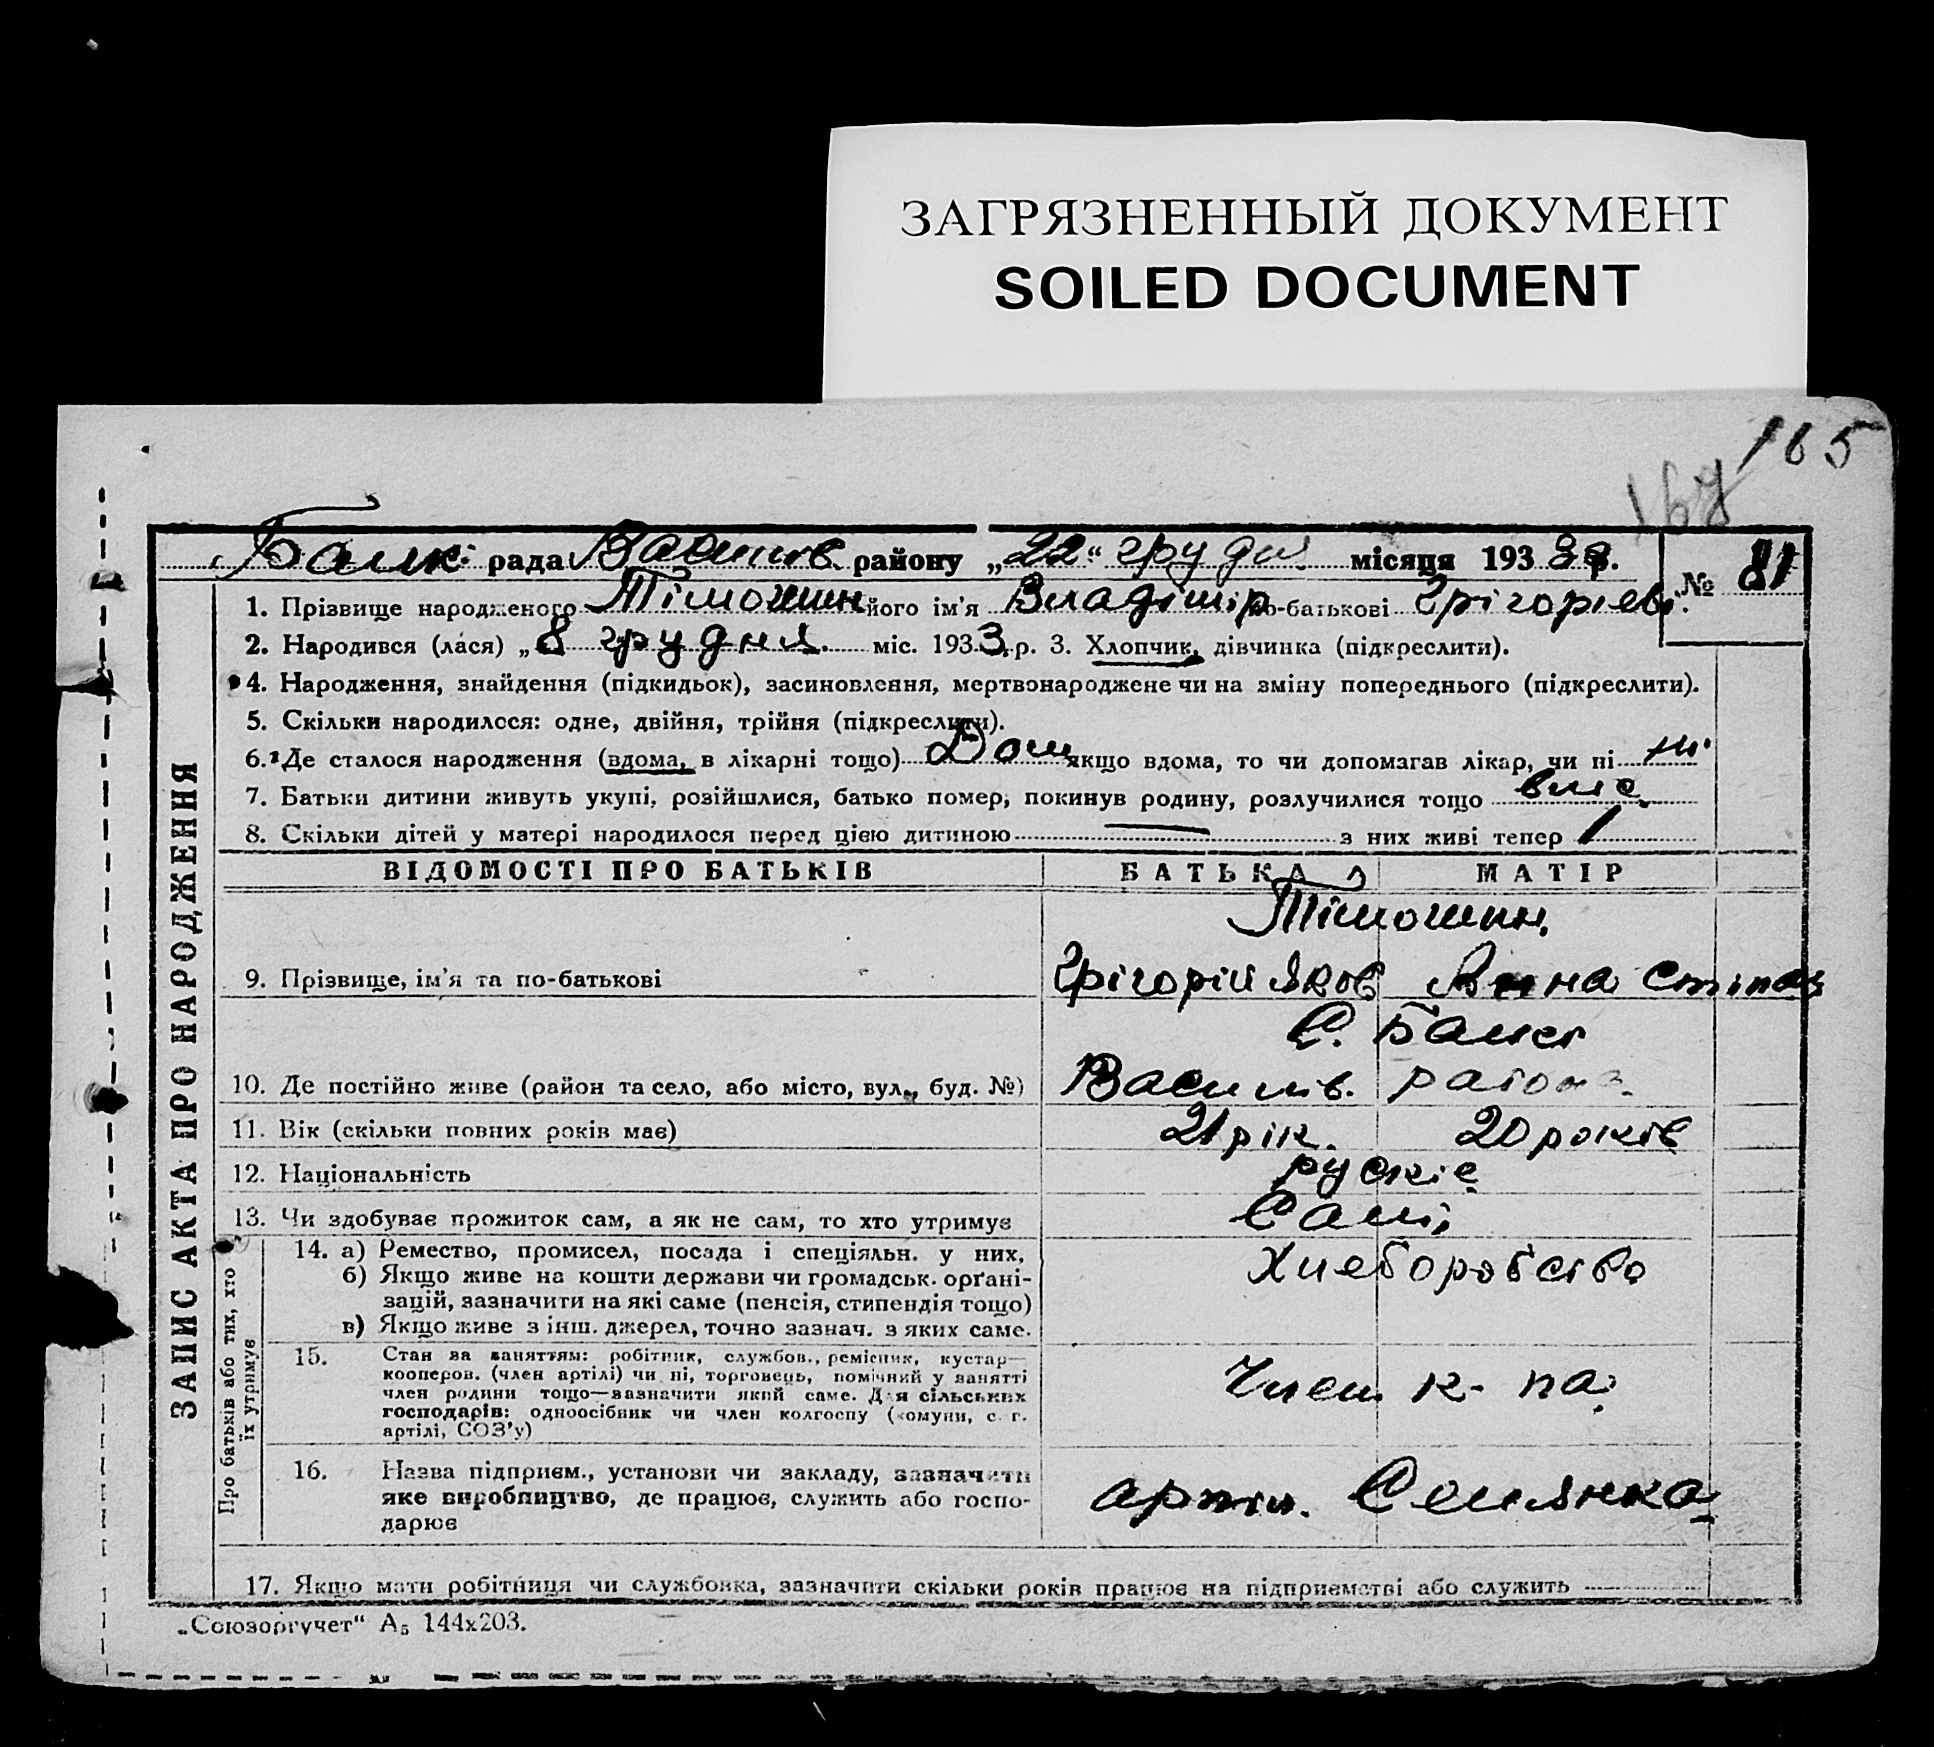 ЗАГРЯЗНЕННЫЙ ДОКУМЕНТ
SOILED DOCUMENT
165
167
Балк. рада Василів. району „22“ грудня місяця 193 3 р. № 81
ЗАПИС АКТА ПРО НАРОДЖЕННЯ
1. Прізвище народженого Тімошин його ім'я Владімір по-батькові Грігорієв.
2. Народився (лася) „8 грудня. міс. 193 3 р. 3. Хлопчик, дівчинка (підкреслити).
4. Народження, знайдення (підкидьок), засиновлення, мертвонароджене чи на зміну попереднього (підкреслити).
5. Скільки народилося: одне, двійня, трійня (підкреслити).
6. Де сталося народження (вдома, в лікарні тощо) Дом якщо вдома, то чи допомагав лікар, чи ні ні
7. Батьки дитини живуть укупі, розійшлися, батько помер, покинув родину, розлучилися тощо
8. Скільки дітей у матері народилося перед цією дитиною — з них живі тепер 1
ВІДОМОСТІ ПРО БАТЬКІВ БАТЬКА МАТІР
Тімошин.
9. Прізвище, ім'я та по-батькові Грігорій Яков Анна Степан
С. Балки
10. Де постійно живе (район та село, або місто, вул., буд. №) Василів. района
11. Вік (скільки повних років має) 21 рік. 20 років
12. Національність рускіе
13. Чи здобуває прожиток сам, а як не сам, то хто утримує Самі
Про батьків або тих, хто їх утримує
14. а) Ремество, промисел, посада і спеціяльн. у них. Хлеборобство
б) Якщо живе на кошти держави чи громадськ. органі-
зацій, зазначити на які саме (пенсія, стипендія тощо)
в) Якщо живе з інш. джерел, точно зазнач. з яких саме.
15. Стан за заняттям: робітник, службов., ремісник, кустар—
кооперов. (член артілі) чи ні, торговець, помічний у занятті
член родини тощо—зазначити який саме. Для сільських
господарів: одноосібник чи член колгоспу (комуни, с. г.
артілі, СОЗ'у) Член к-па
16. Назва підприєм., установи чи закладу, зазначити
яке виробництво, де працює, служить або госпо- артіл. Селянка
дарює
17. Якщо мати робітниця чи службовка, зазначити скільки років працює на підприємстві або служить
„Союзоргучет“ А₅ 144х203.